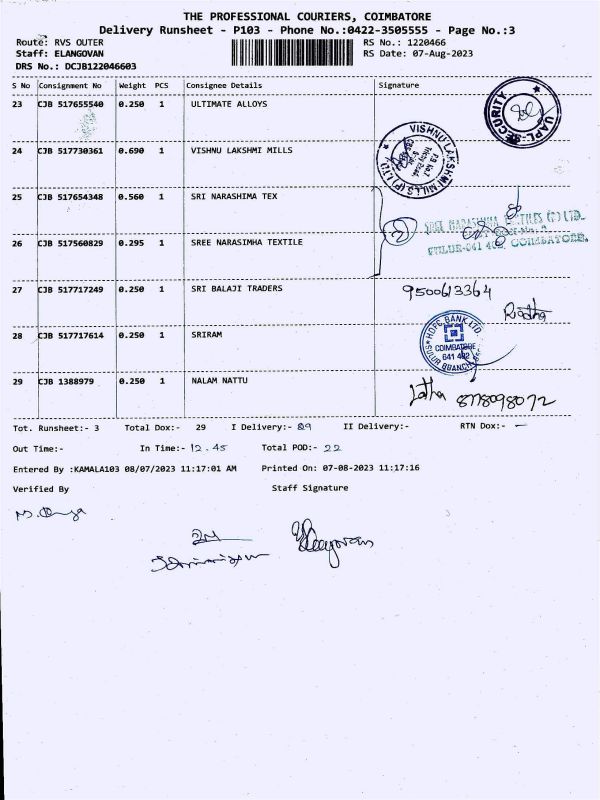 THE PROFESSIONAL COURIERS, COIMBATORE
Delivery Runsheet - P103 - Phone No.:0422-3505555 - Page No.:3
Route: RVS OUTER RS No.: 1220466
Staff: ELANGOVAN RS Date: 07-Aug-2023
DRS No.: DCJB122046603
S No Consignment No Weight PCS Consignee Details Signature
23 CJB 517655540 0.250 1 ULTIMATE ALLOYS
SECURITY UAPL
24 CJB 517730361 0.690 1 VISHNU LAKSHMI MILLS
VISHNU LAKSHMI MILLS (P) LTD
25 CJB 517654348 0.560 1 SRI NARASHIMA TEX
26 CJB 517560829 0.295 1 SREE NARASIMHA TEXTILE
SREE NARASIMHA TEXTILES (P) LTD.
COIMBATORE.
27 CJB 517717249 0.250 1 SRI BALAJI TRADERS
9500613364
28 CJB 517717614 0.250 1 SRIRAM
HOPE BANK LTD
COIMBATORE
641 402
SULUR BRANCH
29 CJB 1388979 0.250 1 NALAM NATTU
Latha 8778098072
Tot. Runsheet:- 3 Total Dox:- 29 I Delivery:- 29 II Delivery:- RTN Dox:- -
Out Time:- In Time:- 12.45 Total POD:- 22
Entered By :KAMALA103 08/07/2023 11:17:01 AM Printed On: 07-08-2023 11:17:16
Verified By Staff Signature